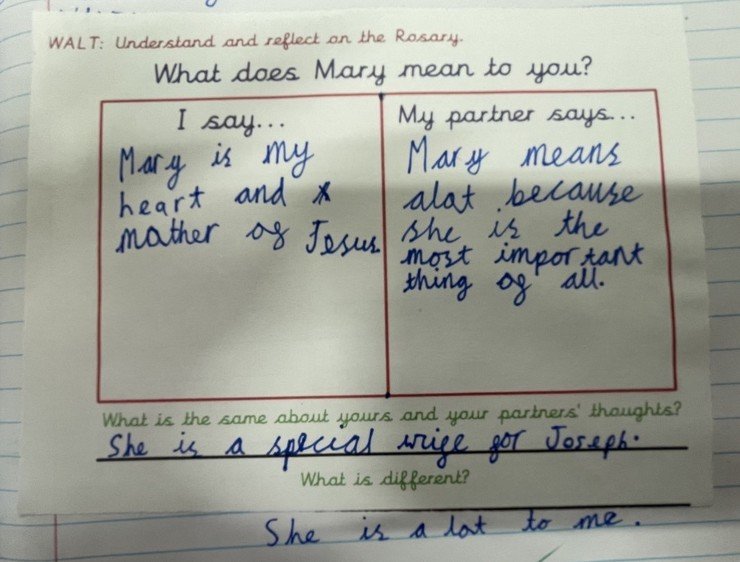 WALT: Understand and reflect on the Rosary.
What does Mary mean to you?
I say...
Mary is my
heart and
mather of Jesus
My partner says...
Mary means
alat because
she is the
most important
thing of all.
What is the same about yours and your partners' thoughts?
She is a special wife for Joseph.
What is different?
She is a lat to me.